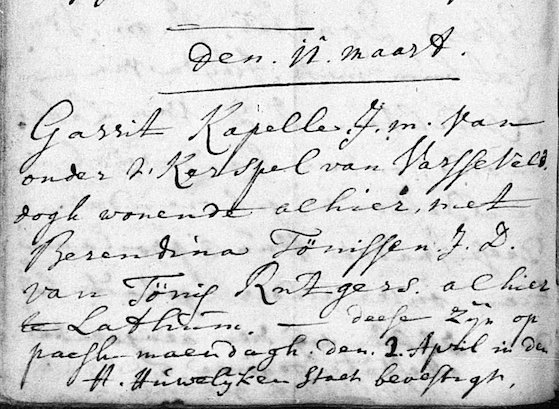 Den. 11. maart.
Garrit Kapelle. J. m. van
onder 't Kerspel van Varssevelt,
dogh wonende alhier, met
Berendina Tönissen. J. D.
van Tönis Rutgers. alhier
te Lathum. — deese zÿn op
paesh-maendagh. den. 2. April in den
H. Huwelÿken staet bevestigt,